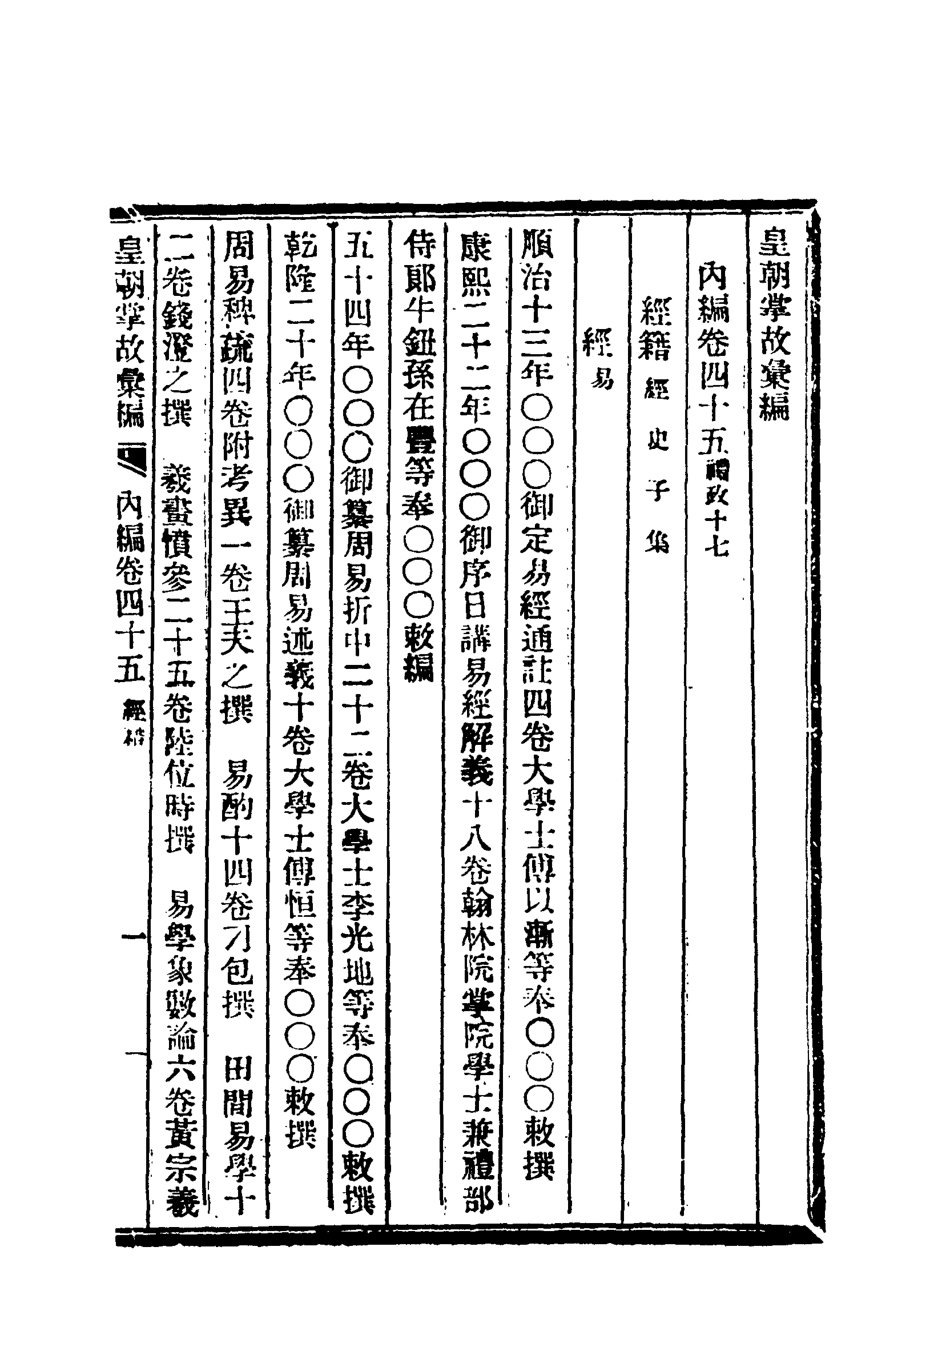 皇朝掌故彙編
內編卷四十五禮政十七
經籍經 史 子 集
經易
順治十三年〇〇〇御定易經通註四卷大學士傅以漸等奉〇〇〇敕撰
康熙二十二年〇〇〇御序日講易經解義十八卷翰林院掌院學士兼禮部
侍郞牛鈕孫在豐等奉〇〇〇敕編
五十四年〇〇〇御纂周易折中二十二卷大學士李光地等奉〇〇〇敕撰
乾隆二十年〇〇〇御纂周易述義十卷大學士傅恒等奉〇〇〇敕撰
周易稗疏四卷附考異一卷王夫之撰　易酌十四卷刁包撰　田間易學十
二卷錢澄之撰　羲畫憤參二十五卷陸位時撰　易學象數論六卷黃宗羲
皇朝掌故彙編 內編卷四十五 經籍 一 一